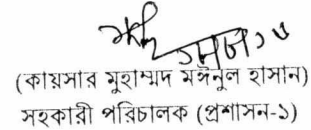 (কায়সার মুহাম্মদ মঈনুল হাসান)
সহকারী পরিচালক (প্রশাসন-১)